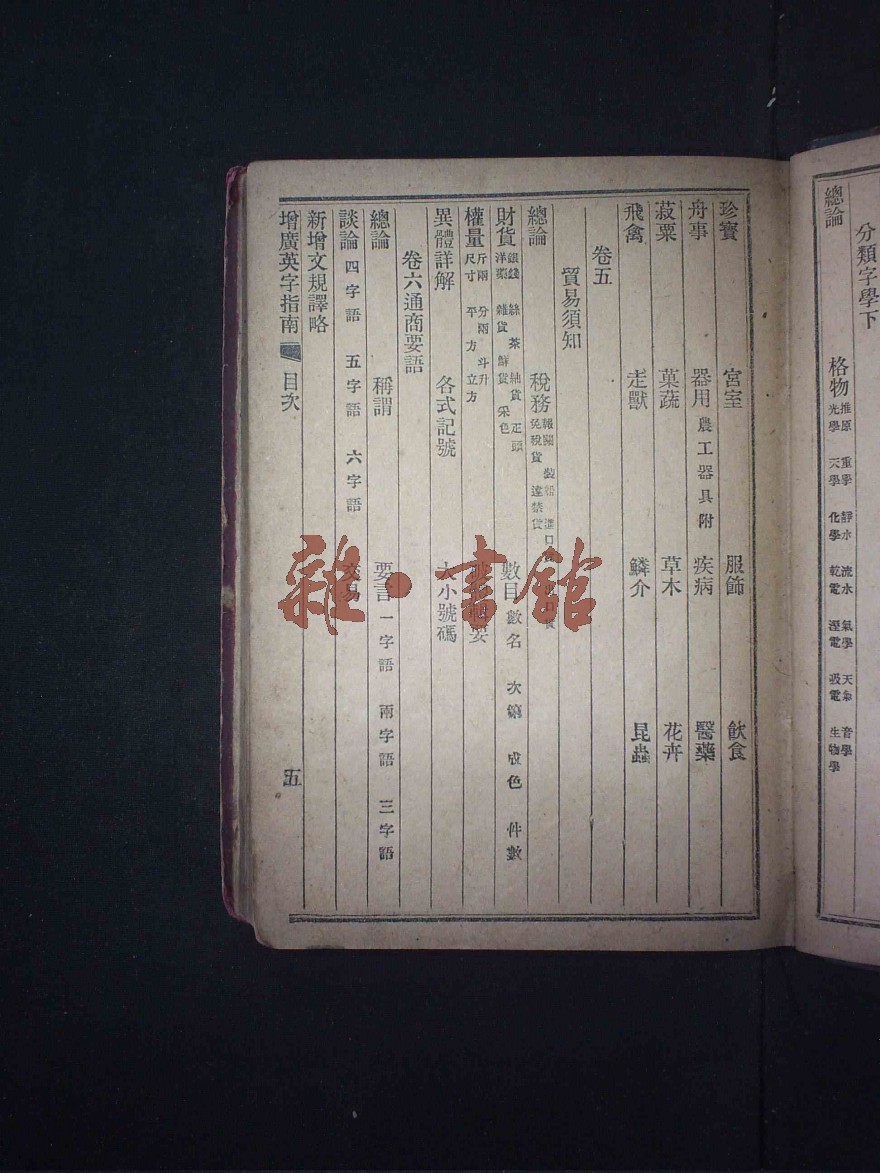 分類字學下
總論 格物 推原 重學 靜水 流水 氣學 天氣 音學 光學 天學 化學 乾電 溼電 吸電 生物學
珍寶 宮室 服飾 飲食
舟事 器用 農工器具附 疾病 醫藥
菽粟 菓蔬 草木 花卉
飛禽 走獸 鱗介 昆蟲
卷五
貿易須知
總論 稅務 報關 進口 免稅貨 違禁貨
財貨 銀錢 絲茶 紬貨 疋頭 洋藥 雜貨 鮮貨 采色 數目 數名 次第 成色 件數
權量 斤兩 分兩 斗升 尺寸 平方 立方
異體詳解 各式記號 大小號碼
卷六通商要語
總論 稱謂 要言 一字語 兩字語 三字語
談論 四字語 五字語 六字語 交易
新增文規譯略
增廣英字指南 目次 五
雜·書館